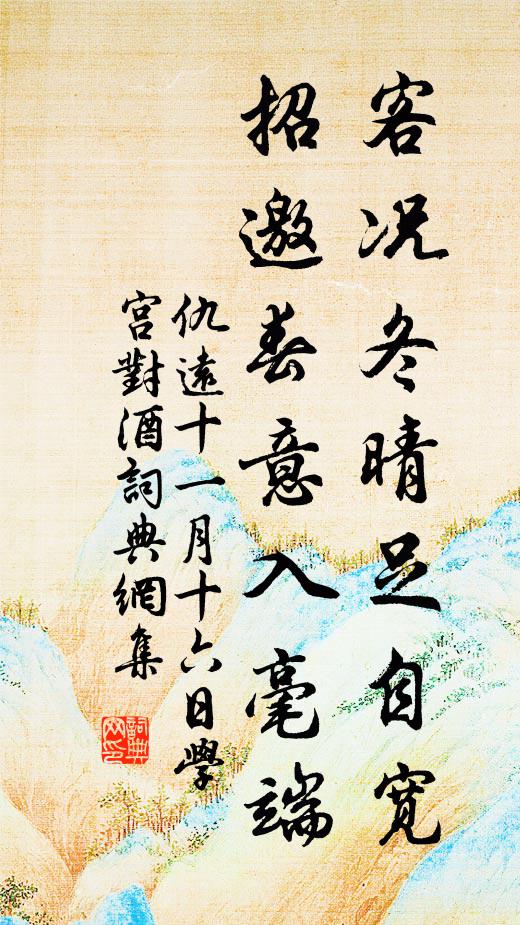 客況冬晴足自寬
招邀春意入毫端
仇遠十一月十六日學
宮對酒詞典網集
詞典